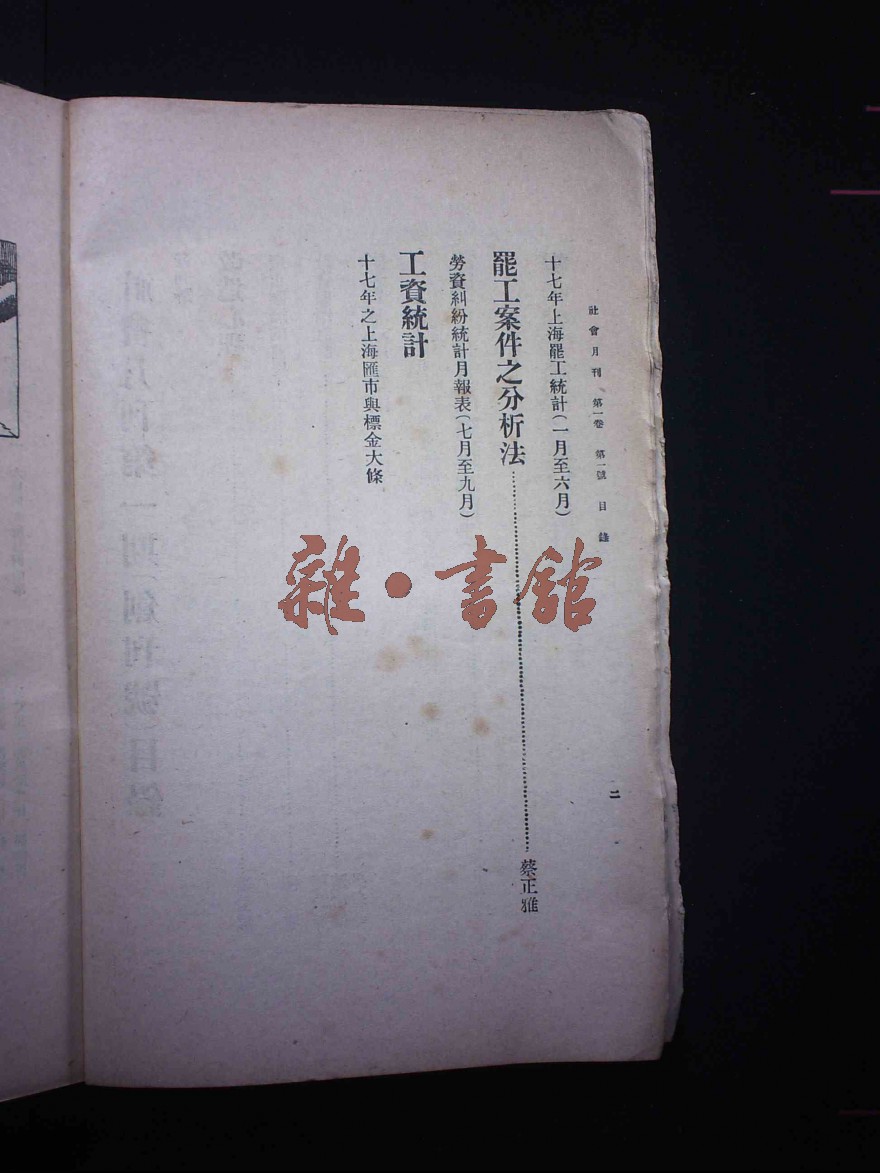 社會月刊 第一卷 第一號 目錄
二
十七年上海罷工統計(一月至六月)
罷工案件之分析法……蔡正雅
勞資糾紛統計月報表(七月至九月)
工資統計
十七年之上海匯市與標金大條
雜·書館